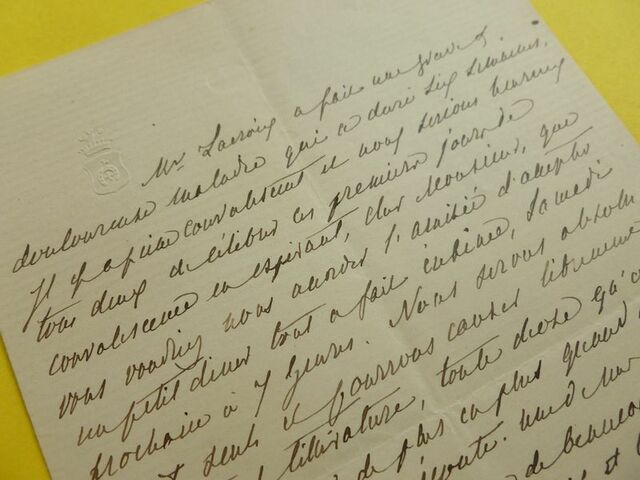 Mr Lacroix a fait une grave &
douloureuse maladie qui a duré six semaines.
Il est à peine convalescent et nous serions heureux
tous deux de célébrer ces premiers jours de
convalescence en espérant, cher Monsieur, que
vous voudriez nous accorder l'amitié d'accepter
un petit diner tout à fait intime, Samedi
prochain à 7 heures. Nous serons absolu
seuls et pourrons causer librement
littérature, toute chose qu'
de plus en plus quand
de beaucou